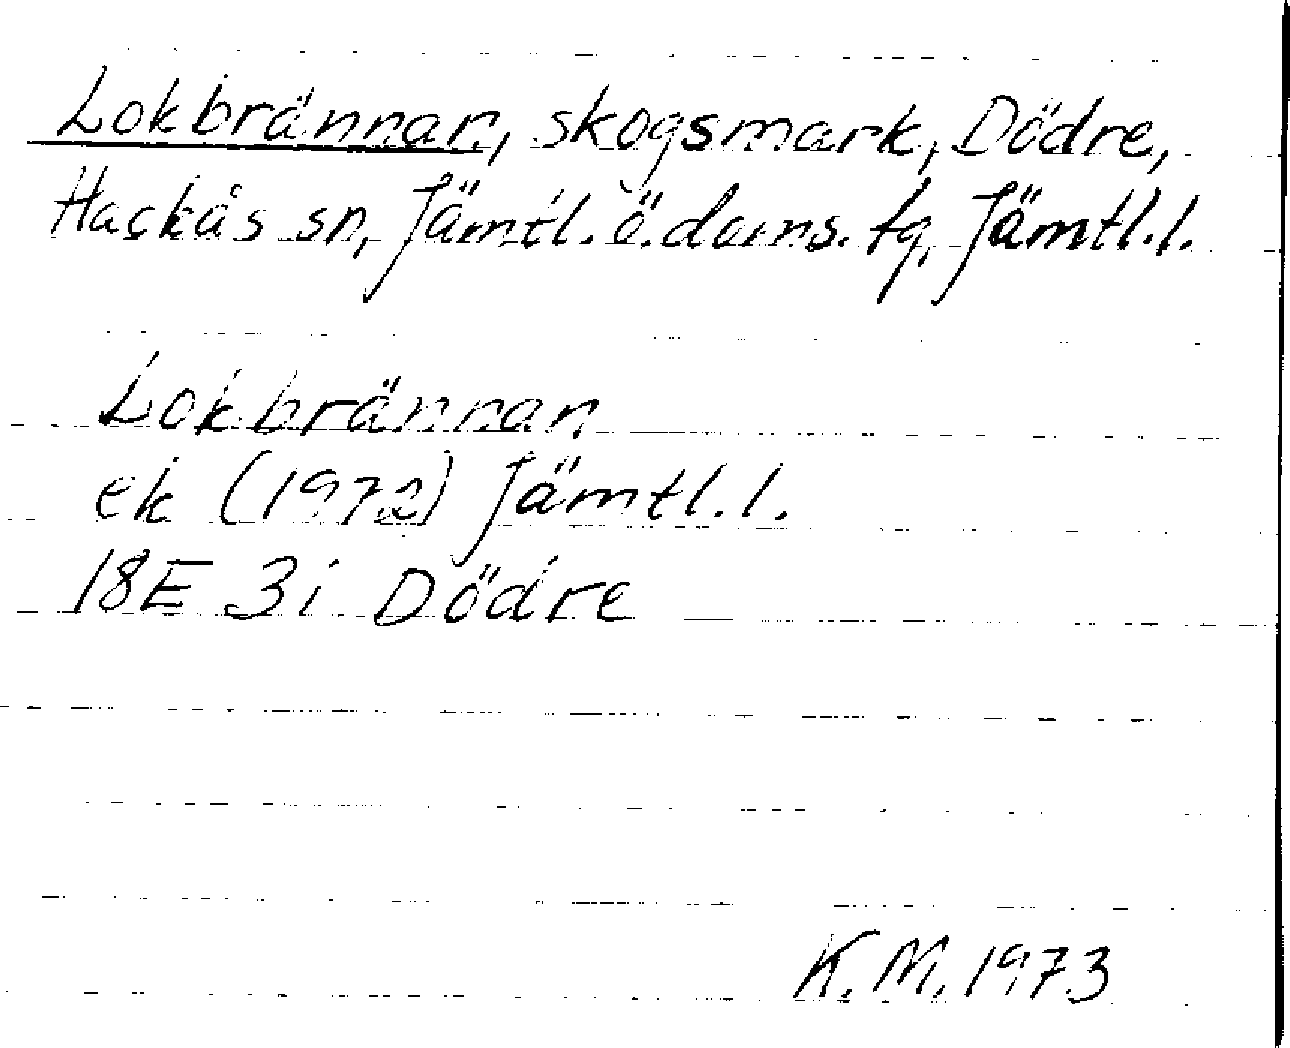 Lokbrännan, skogsmark, Dödre,
Hackås sn, Jämtl. ö. doms. tg, Jämtl. l.
Lokbrännan
ek (1972) Jämtl. l.
18E 3i Dödre
K. M. 1973